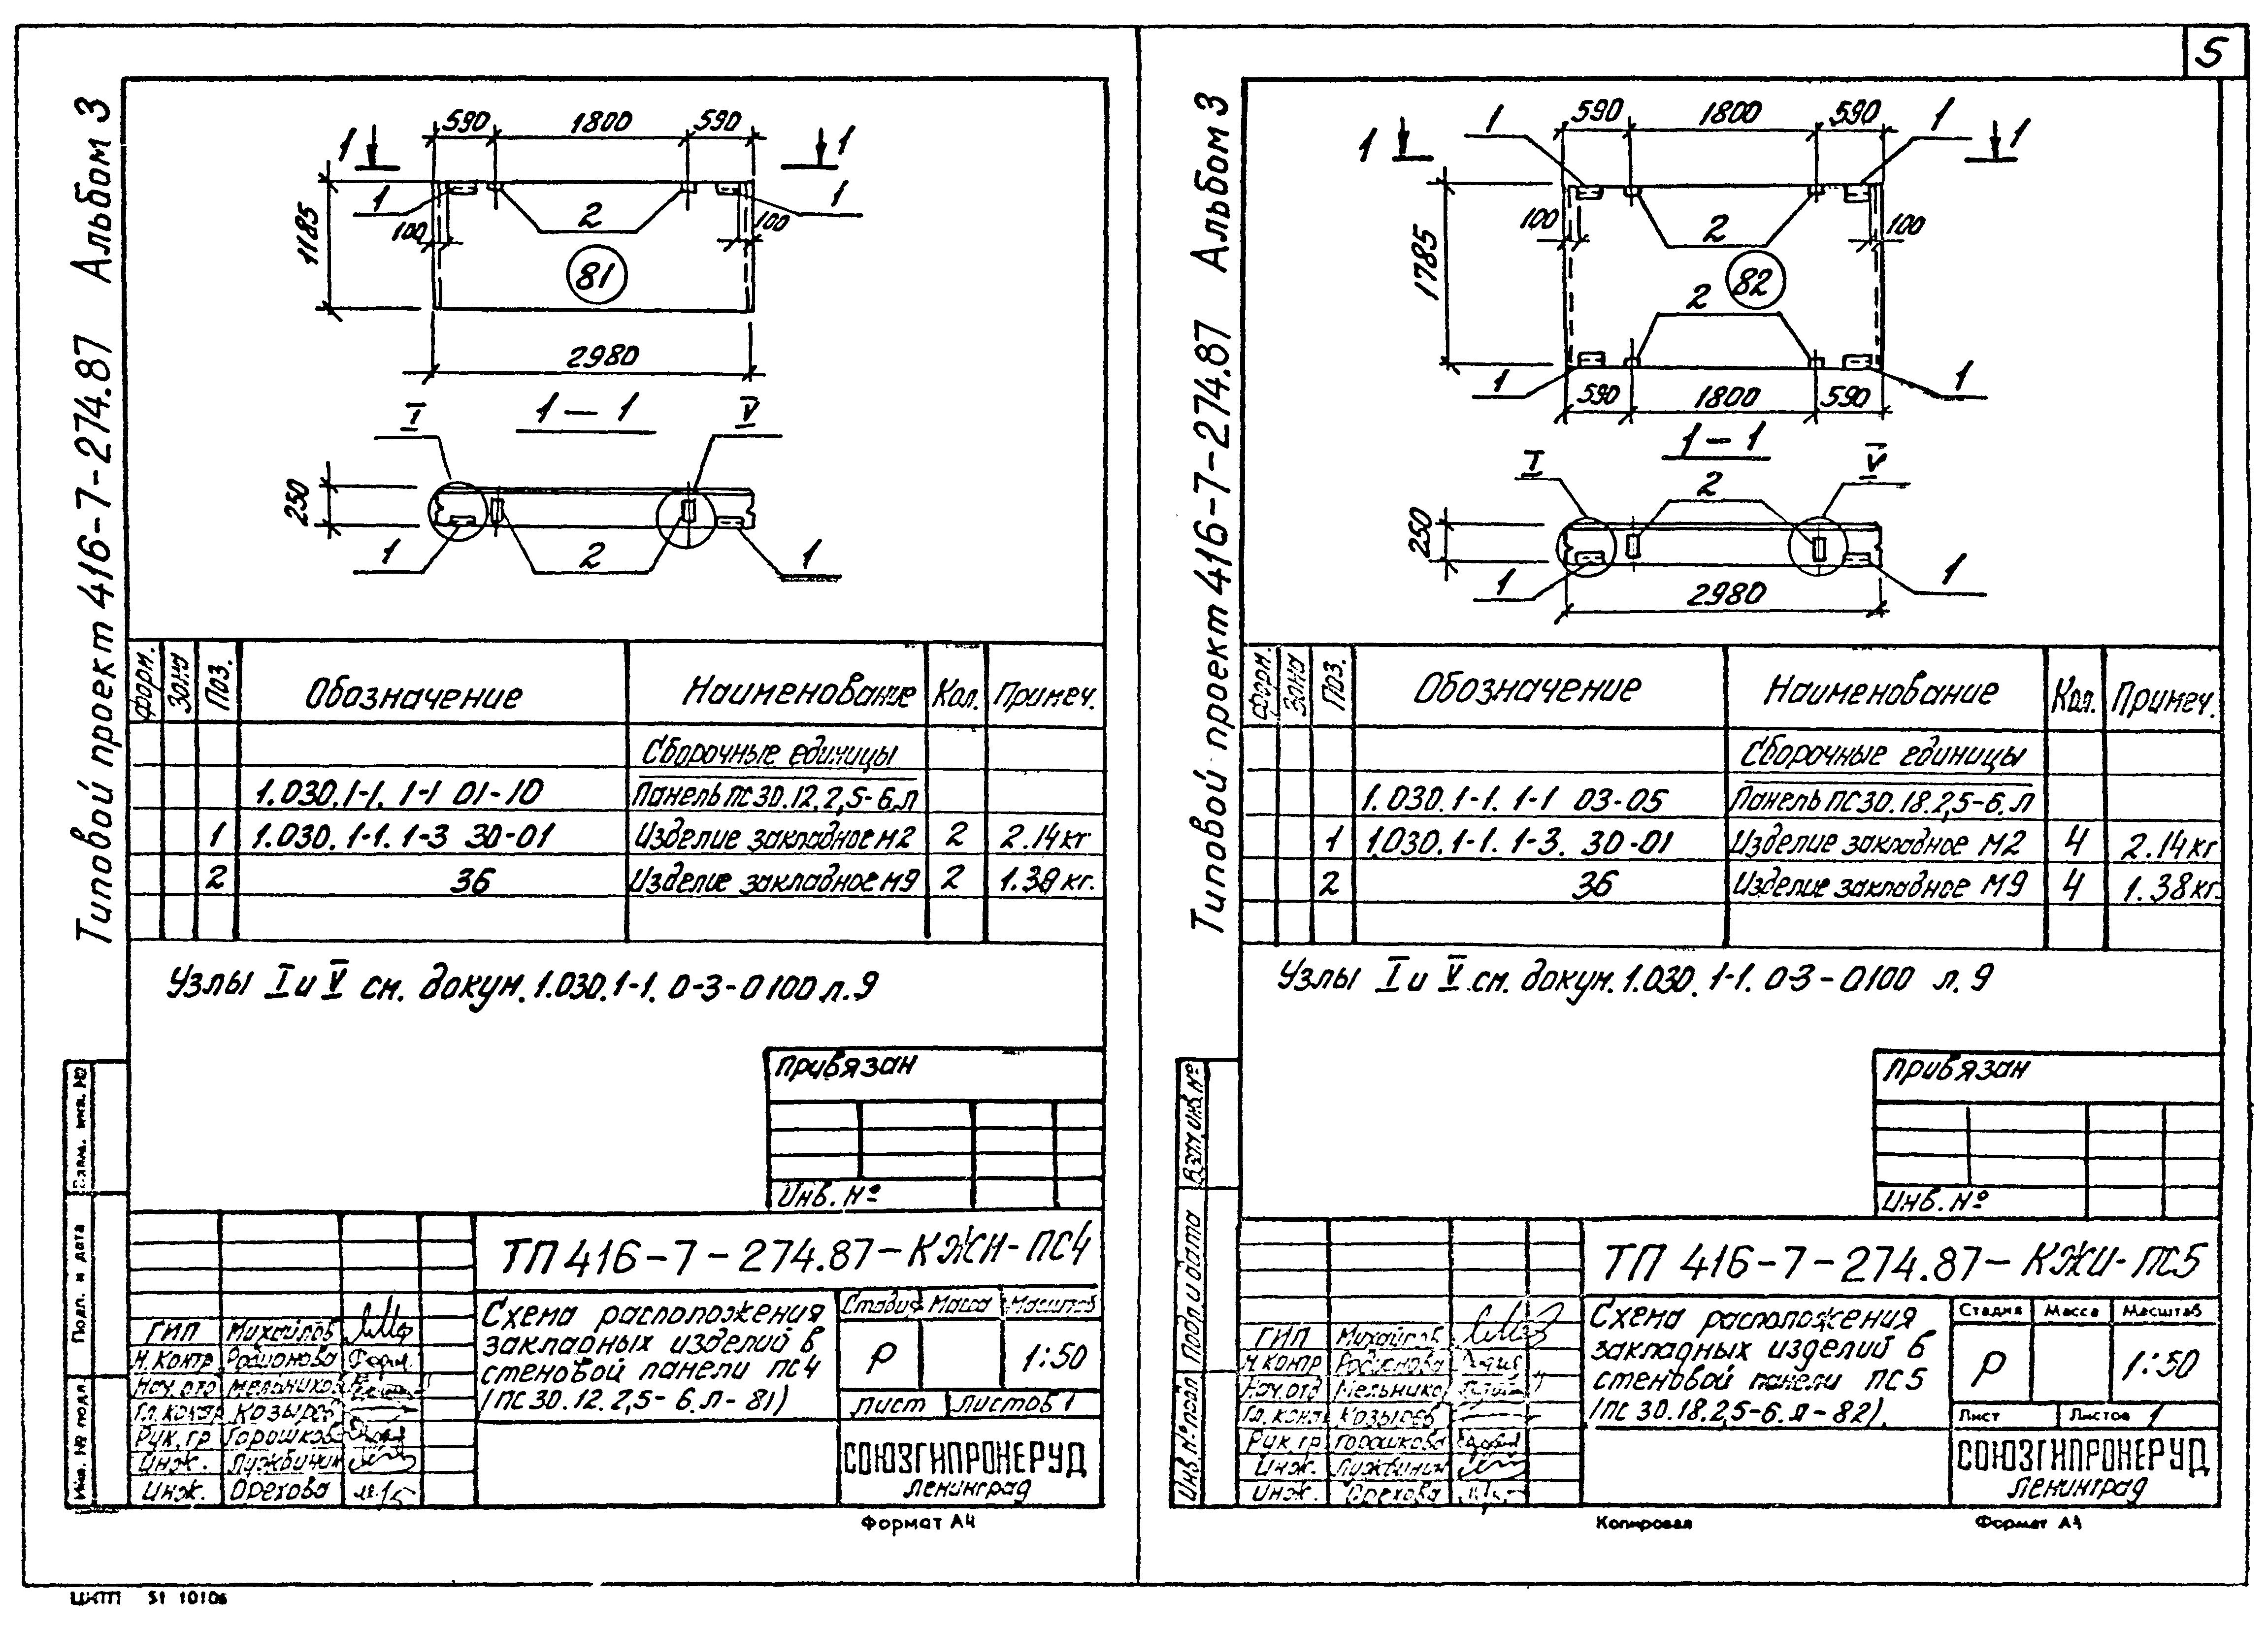 5
Типовой проект 416-7-274.87 Альбом 3
590 1800 590
1 1
1 1
2
100 100
1185
81
2980
1-1
I V
250
1 2 1
Форм. Зона Поз. Обозначение Наименование Кол. Примеч.
Сборочные единицы
1.030.1-1. 1-1 01-10 Панель ПС30.12.2,5-6.Л
1 1.030.1-1. 1-3 30-01 Изделие закладное М2 2 2.14кг
2 36 Изделие закладное М9 2 1.38 кг.
Узлы I и V см. докум. 1.030.1-1. 0-3-0100 л.9
Привязан
Инв. №
Взам. инв. №
Подп. и дата
Инв. № подл.
ТП 416-7-274.87-КЖИ-ПС4
Схема расположения
закладных изделий в
стеновой панели ПС4
(ПС30.12.2,5-6.Л-81)
Стадия Масса Масштаб
Р 1:50
Лист Листов 1
СОЮЗГИПРОНЕРУД
Ленинград
ГИП Михайлов
Н.контр Родионова
Нач.отд Мельников
Гл.констр Козырев
Рук.гр Горошкова
Инж. Лужбинин
Инж. Орехова
Формат А4
Типовой проект 416-7-274.87 Альбом 3
590 1800 590
1 1
1 1
100 100
2
1785
82
2
1 1
590 1800 590
1-1
I V
2
250
1 1
2980
Форм. Зона Поз. Обозначение Наименование Кол. Примеч.
Сборочные единицы
1.030.1-1. 1-1 03-05 Панель ПС30.18.2,5-6.Л
1 1.030.1-1. 1-3. 30-01 Изделие закладное М2 4 2.14кг
2 36 Изделие закладное М9 4 1.38кг.
Узлы I и V см. докум. 1.030.1-1. 0-3-0100 л.9
Привязан
Инв. №
Взам. инв. №
Подп и дата
Инв. № подл
ТП 416-7-274.87-КЖИ-ПС5
Схема расположения
закладных изделий в
стеновой панели ПС5
(ПС 30.18.2,5-6.Л-82)
Стадия Масса Масштаб
Р 1:50
Лист Листов 1
СОЮЗГИПРОНЕРУД
Ленинград
ГИП Михайлов
Н.контр Родионова
Нач.отд Мельников
Гл.конст Козырев
Рук.гр Горошкова
Инж. Лужбинин
Инж. Орехова
Копировал Формат А4